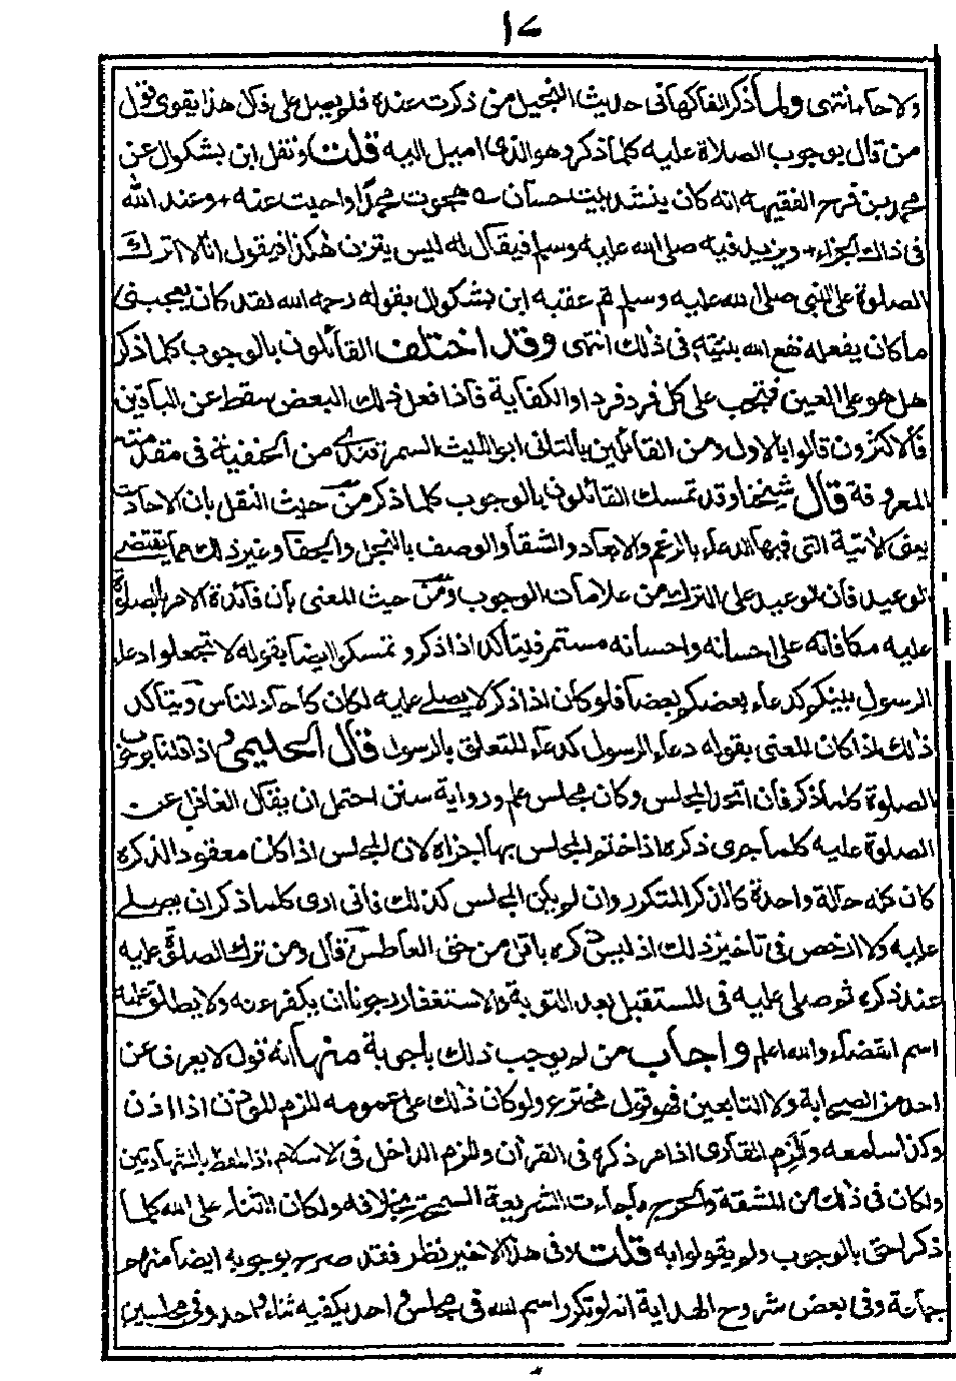 ١٧
ولا حاء انتهى ولما ذكر الفاكهاني حديث البخيل من ذكرت عنده فلم يصل علي ذكل هذا يقوى قول
من قال بوجوب الصلاة عليه كلما ذكر وهو الذى اميل اليه قلت ونقل ابن بشكوال عن
محمد بن فرج الفقيه انه كان ينشد بيت حسان هجوت محمدا واجبت عنه وعند الله
فى ذاك الجزاء ويزيد فيه صلى الله عليه وسلم فيقال له ليس يتزن هكذا فيقول انا لا اترك
الصلوة على النبي صلى الله عليه وسلم ثم عقبه ابن بشكوال بقوله رحمه الله لقد كان يعجبني
ما كان يفعله نفع الله بنيته فى ذلك انتهى وقد اختلف القائلون بالوجوب كلما ذكر
هل هو على العين فتجب على كل فرد فرد او الكفاية فاذا فعل ذلك البعض سقط عن الباقين
فالاكثرون قالوا بالاول ومن القائلين بالثاني ابو الليث السمرقندي من الحنفية فى مقدمته
المعروفة قال شيخنا وقد تمسك القائلون بالوجوب كلما ذكر من حيث النقل بان الاحاديث
الاتية التى فيها الدعاء بالرغم والابعاد والشقاء والوصف بالبخل والجفاء وغير ذلك مما يقتضى
الوعيد فان الوعيد على الترك من علامات الوجوب ومن حيث المعنى بان فائدة الامر بالصلوة
عليه مكافاته على احسانه واحسانه مستمر فيتاكد اذا ذكر وتمسكوا ايضا بقوله لا تجعلوا دعاء
الرسول بينكم كدعاء بعضكم بعضا فلو كان اذا ذكر لا يصلى عليه لكان كاحاد الناس ويتاكد
ذلك اذا كان المعنى بقوله دعاء الرسول كدعاء المتعلق بالرسول قال الحليمي اذا قلنا بوجوب
الصلوة كلما ذكر فان اتحد المجلس وكان مجلس علم ورواية سنن احتمل ان يقال الغافل عن
الصلوة عليه كلما جرى ذكره اذا ختم المجلس بها اجزاه لان المجلس اذا كان معقودا لذكره
كان كله حالة واحدة كالذكر المتكرر وان لم يكن المجلس كذلك فاني ارى كلما ذكر ان يصلى
عليه ولا ارخص فى تاخير ذلك اذ ليس ذكره باقل من حق العاطس قال ومن ترك الصلوة عليه
عند ذكره ثم صلى عليه فى المستقبل بعد التوبة والاستغفار رجونا ان يكفر عنه ولا يطلق عليه
اسم القضاء والله اعلم واجاب من لم يوجب ذلك باجوبة منها انه قول لا يعرف عن
احد من الصحابة ولا التابعين فهو قول مخترع ولو كان ذلك على عمومه للزم للمؤذن اذا اذن
وكذا سامعه وللزم القارى اذا مر ذكره فى القران وللزم الداخل فى الاسلام اذا تلفظ بالشهادتين
ولكان فى ذلك من المشقة والحرج ما جاءت الشريعة السمحة بخلافه ولكان الثناء على الله كلما
ذكر احق بالوجوب ولم يقولوا به قلت وفى هذا الاخير نظر فقد صرح بوجوبه ايضا منهم
جماعة وفى بعض شروح الهداية انه لو تكرر اسم الله فى مجلس واحد يكفيه ثناء واحد وفى مجلسين